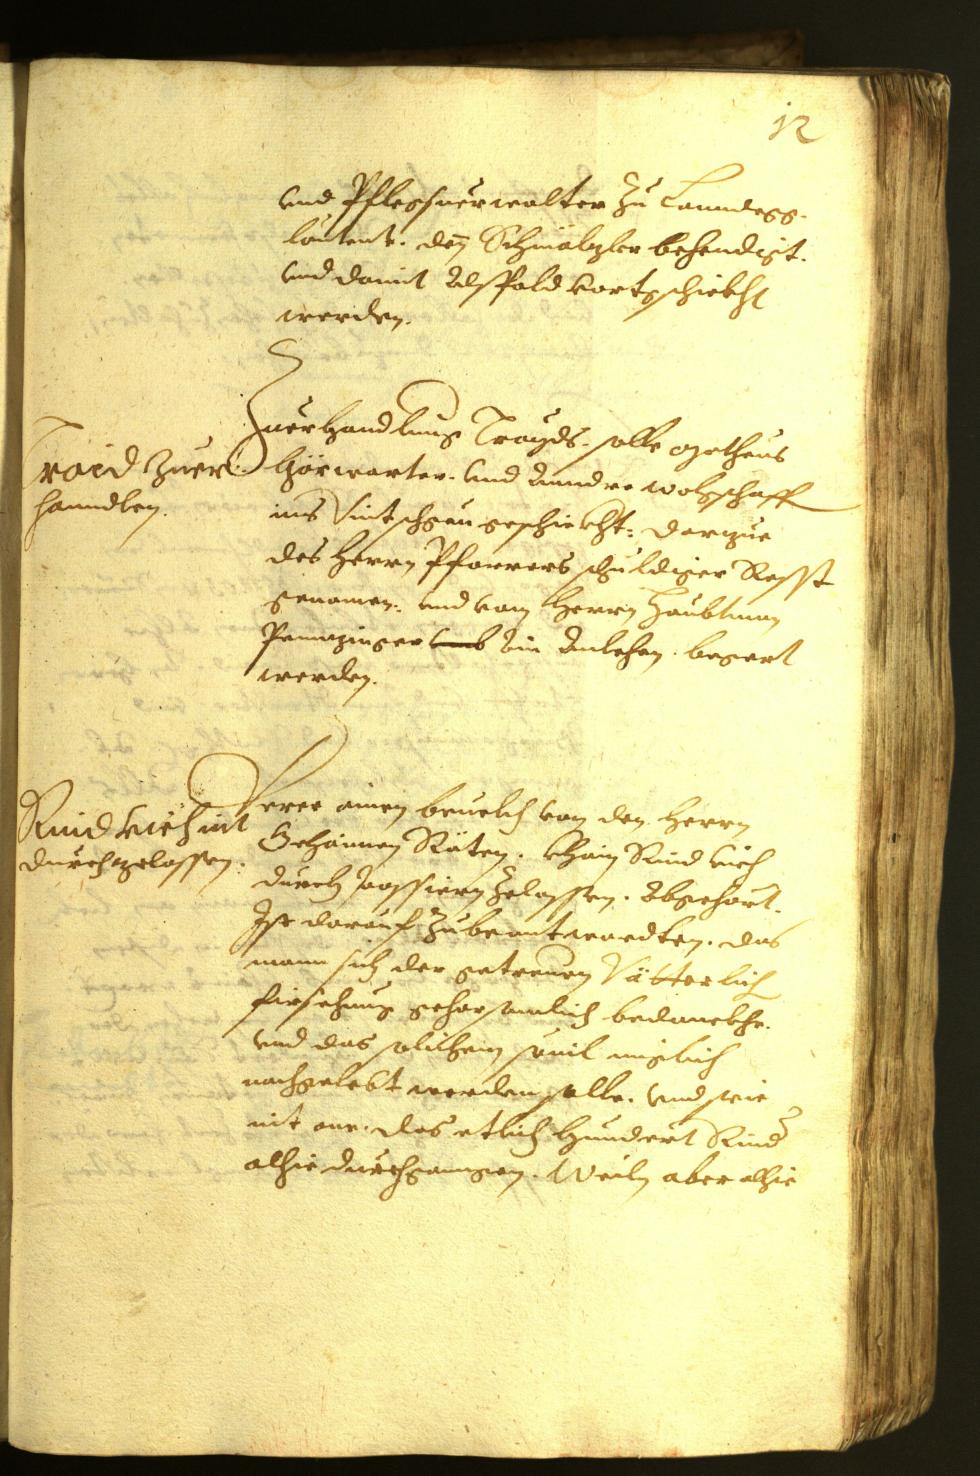 12
vnd Pflegsuerwalter zu Lanndegg.
lautent. dem Schmälzler behendigt.
vnd damit Alspald fortgschickht
werden.
Traid zuer-
hanndlen.
Zuerhandlung Trayds. solle Matheus
Hörwarter. vnd Anndre Wolgschaff
ins Vintschgeu geschickht: darzue
des Herrn Pfarrers schuldiger Resst
genomen: vnd vom Herrn Haubtman
ain Anlehen. begert
werden.
Rind vich nit
durchzelassen.
Yber ainen beuelch von den Herrn
Gehaimen Räten. khain Rind vich
durch passiern zelassen. Abgehört.
Ist darauf zubeantwordten. das
mann sich der getreuen Vätterlich
fürsehung gehorsamlich bedanckhe.
vnd das solichem souil miglich
nachgelebt werden solle. vnd seie
nit one. das etlich hundert Rind
alhie durchganngen. Weiln aber alhie